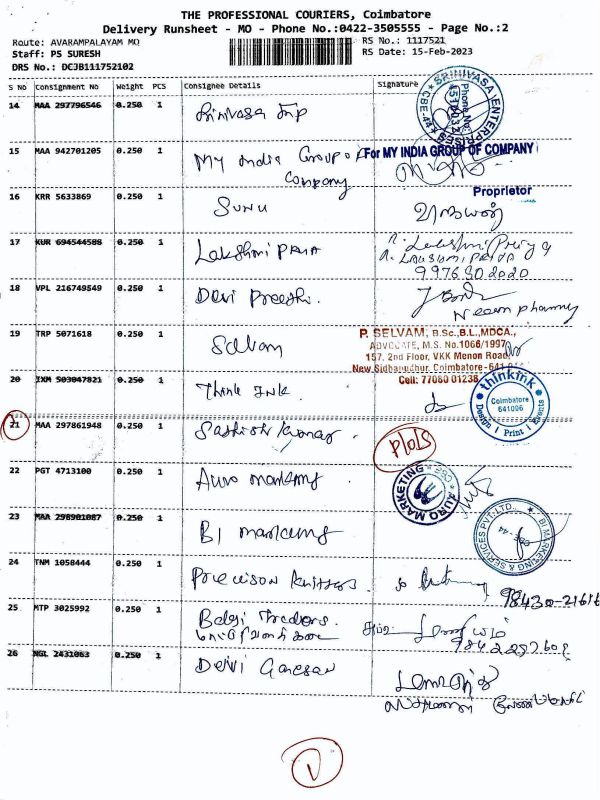 THE PROFESSIONAL COURIERS, Coimbatore
Delivery Runsheet - MO - Phone No.:0422-3505555 - Page No.:2
Route: AVARAMPALAYAM MO RS No.: 1117521
Staff: PS SURESH RS Date: 15-Feb-2023
DRS No.: DCJB111752102
S NO Consignment No Weight PCS Consignee Details Signature
14 MAA 297796546 0.250 1 Srinivasa Enp
SRINIVASA ENTERPRISES
CBE-44
Phone No:
15 MAA 942701205 0.250 1 My India Group of For MY INDIA GROUP OF COMPANY
Company
Proprietor
16 KRR 5633869 0.250 1 SUNU
17 KUR 694544588 0.250 1 Lakshmi PRIYA
LAKSHMI PRIYA
9976902020
18 VPL 216749549 0.250 1 Devi Preethi.
Neeam pharmacy
19 TRP 5071618 0.250 1 Selvam
P. SELVAM, B.Sc.,B.L.,MDCA.,
ADVOCATE, M.S. No.1066/1997
157, 2nd Floor, VKK Menon Road,
New Sidhapudhur, Coimbatore-641
Cell: 77080 01238
20 IXM 503047821 0.250 1 Think INK
thinkink
Coimbatore
641006
Design | Print | Events
21 MAA 297861948 0.250 1 Sathish Kumar.
22 PGT 4713100 0.250 1 Auro marketing
AURO MARKETING
23 MAA 298901087 0.250 1 BI marketing
BI MARKETING & SERVICES PVT. LTD.,
CBE-44
24 TNM 1058444 0.250 1 Precision Knitters
98430-21616
25 MTP 3025992 0.250 1 Balaji Traders.
26 NGL 2431063 0.250 1 Devi Ganesan